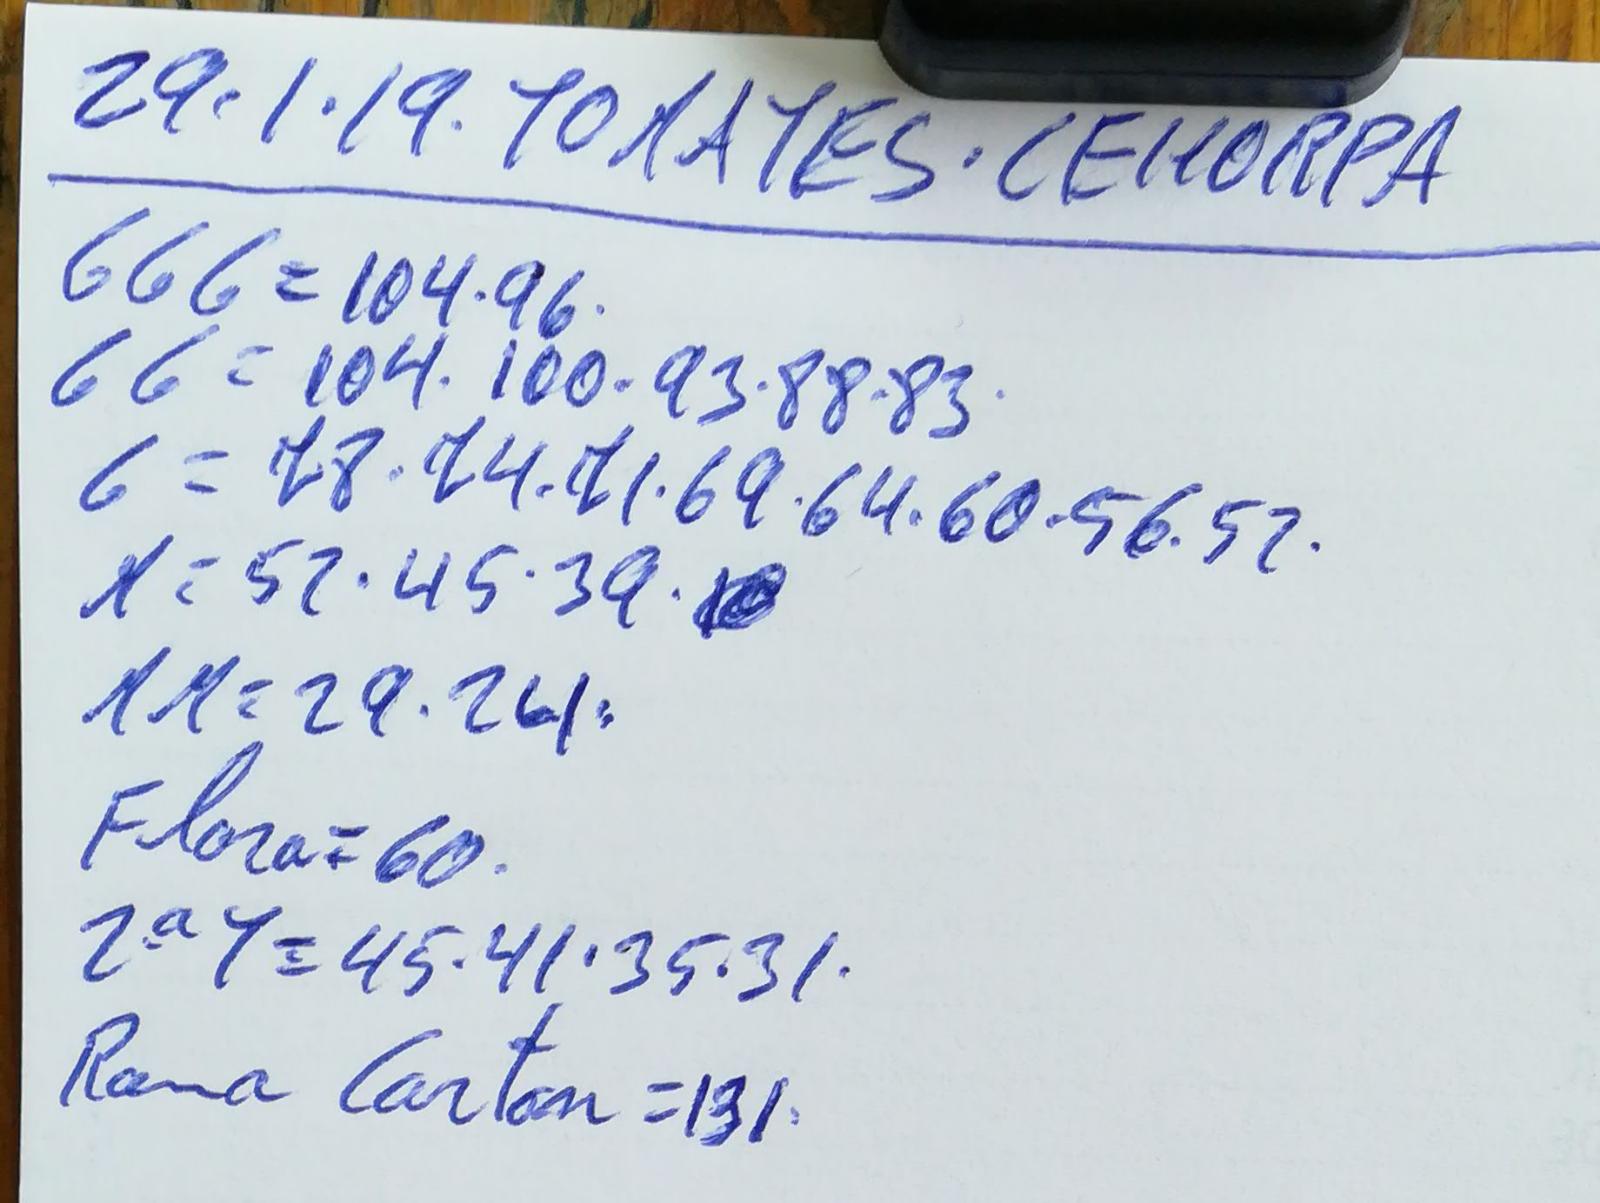 29.1.19. TOMATES. CEHORPA
GGG = 104.96.
GG = 104. 100. 93. 88. 83.
G = 78. 74. 71. 69. 64. 60. 56. 52.
M = 52. 45. 39.
MM = 29. 24.
Flora = 60.
2ª T = 45. 41. 35. 31.
Rama Carton = 131.